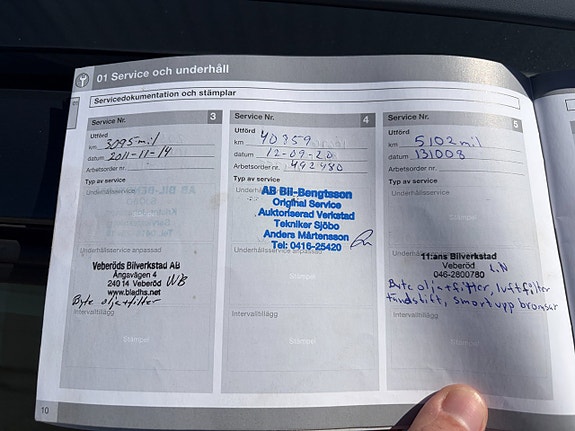 01 Service och underhåll
Servicedokumentation och stämplar
Service Nr. 3
Utförd
km 3095 mil
datum 2011-11-14
Arbetsorder nr.
Typ av service
Underhållsservice
Stämpel
Underhållsservice anpassad
Veberöds Bilverkstad AB
Ängavägen 4
240 14 Veberöd WB
www.bladhs.net
Byte olja+filter
Intervalltillägg
Stämpel
Service Nr. 4
Utförd
km 40359
datum 12-09-20
Arbetsorder nr. 492480
Typ av service
AB Bil-Bengtsson
Original Service
Auktoriserad Verkstad
Tekniker Sjöbo
Anders Mårtensson
Tel: 0416-25420
Intervalltillägg
Stämpel
Service Nr. 5
Utförd
km 5102 mil
datum 131008
Arbetsorder nr.
Typ av service
Underhållsservice
Stämpel
Underhållsservice anpassad
11:ans Bilverkstad
Veberöd L.N
046-2800780
Byte olja+filter, luftfilter
tändstift, smort upp bromsar
Intervalltillägg
Stämpel
10